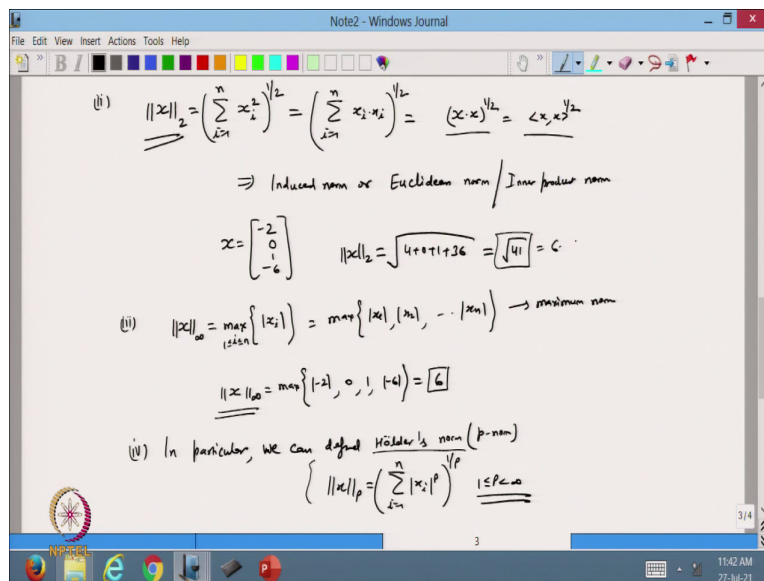 Note2 - Windows Journal
File Edit View Insert Actions Tools Help
B I
(ii) ||x||₂ = (∑ᵢ₌₁ⁿ xᵢ²)^{1/2} = (∑ᵢ₌₁ⁿ xᵢ·xᵢ)^{1/2} = (x·x)^{1/2} = <x,x>^{1/2}
⇒ Induced norm or Euclidean norm / Inner product norm
x = [-2 0 1 -6] ||x||₂ = √(4+0+1+36) = √41 = 6.
(iii) ||x||∞ = max_{1≤i≤n} {|xᵢ|} = max{|x₁|, |x₂|, -- |xₙ|} → maximum norm
||x||∞ = max{|-2|, 0, 1, |-6|} = 6
(iv) In particular, we can defned Hölder's norm (p-norm)
{ ||x||ₚ = (∑ᵢ₌₁ⁿ |xᵢ|^p)^{1/p} 1≤p<∞
3/4
NPTEL
3
11:42 AM
27-Jul-21